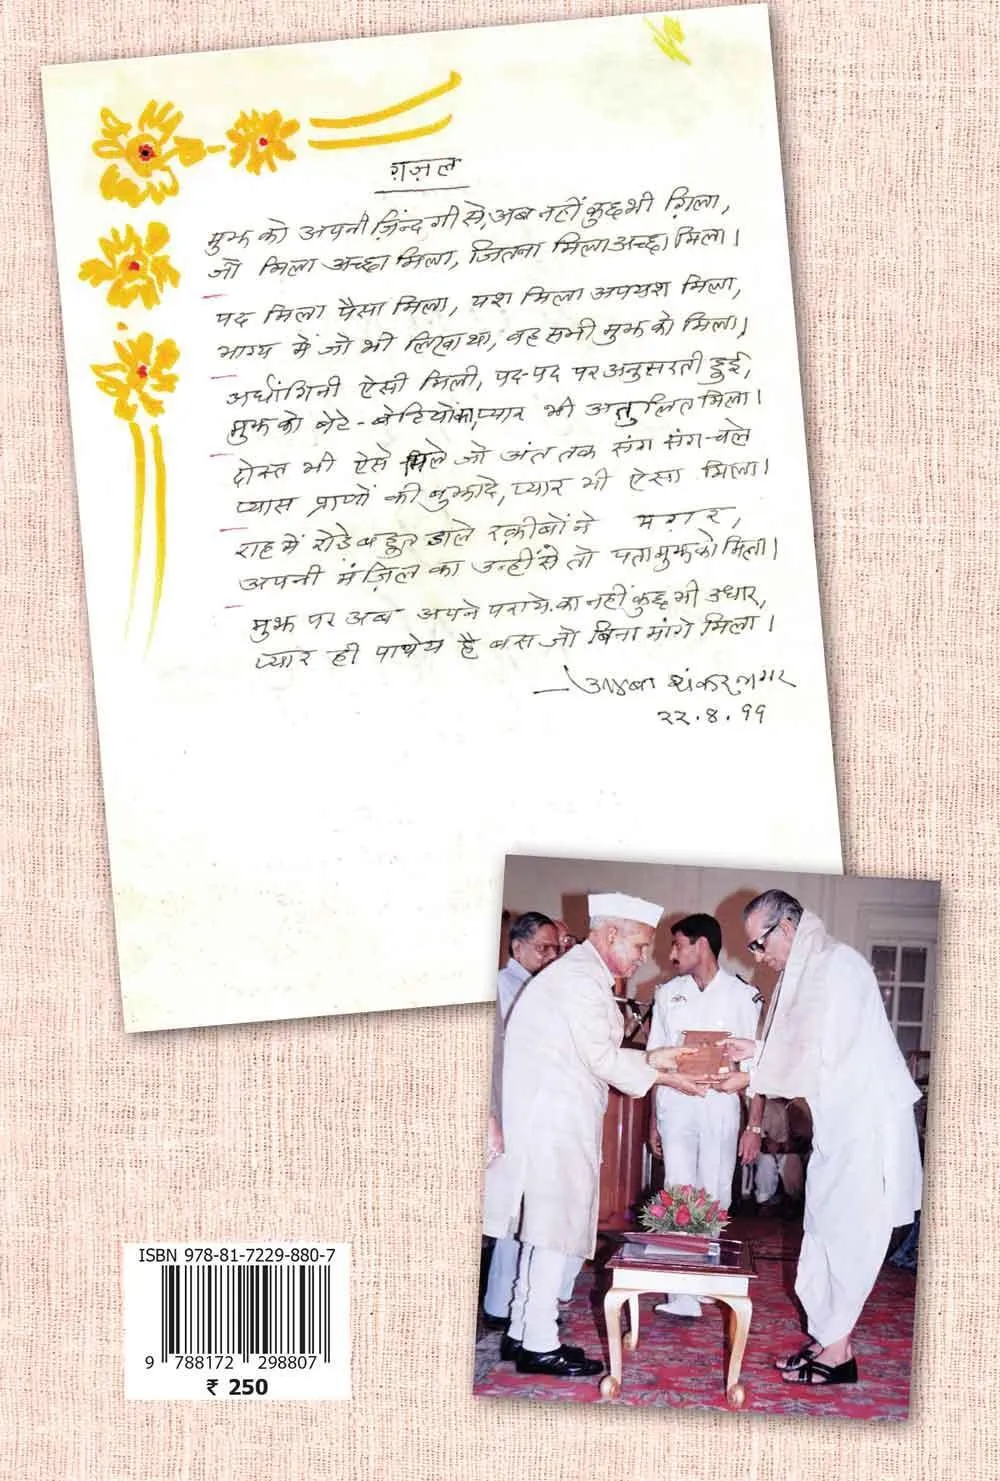 ग़ज़ल
मुझ को अपनी ज़िंन्दगी से, अब नहीं कुछ भी गिला,
जो मिला अच्छा मिला, जितना मिला अच्छा मिला।
पद मिला पैसा मिला, यश मिला अपयश मिला,
भाग्य में जो भी लिखा था, वह सभी मुझ को मिला।
अर्धांगिनी ऐसी मिली, पद-पद पर अनुसरती हुई,
मुझ को बेटे-बेटियों का, प्यार भी अतुलित मिला।
दोस्त भी ऐसे मिले जो अंत तक संग संग-चले
प्यास प्राणों की बुझादे, प्यार भी ऐसा मिला।
राह में रोड़े बहुत डाले रक़ीबों ने मगर,
अपनी मंज़िल का उन्हीं से तो पता मुझको मिला।
मुझ पर अब अपने पराये का नहीं कुछ भी उधार,
प्यार ही पाथेय है बस जो बिना मांगे मिला।
शंकर नागर
२२.४.९९
ISBN 978-81-7229-880-7
9 788172 298807
₹ 250